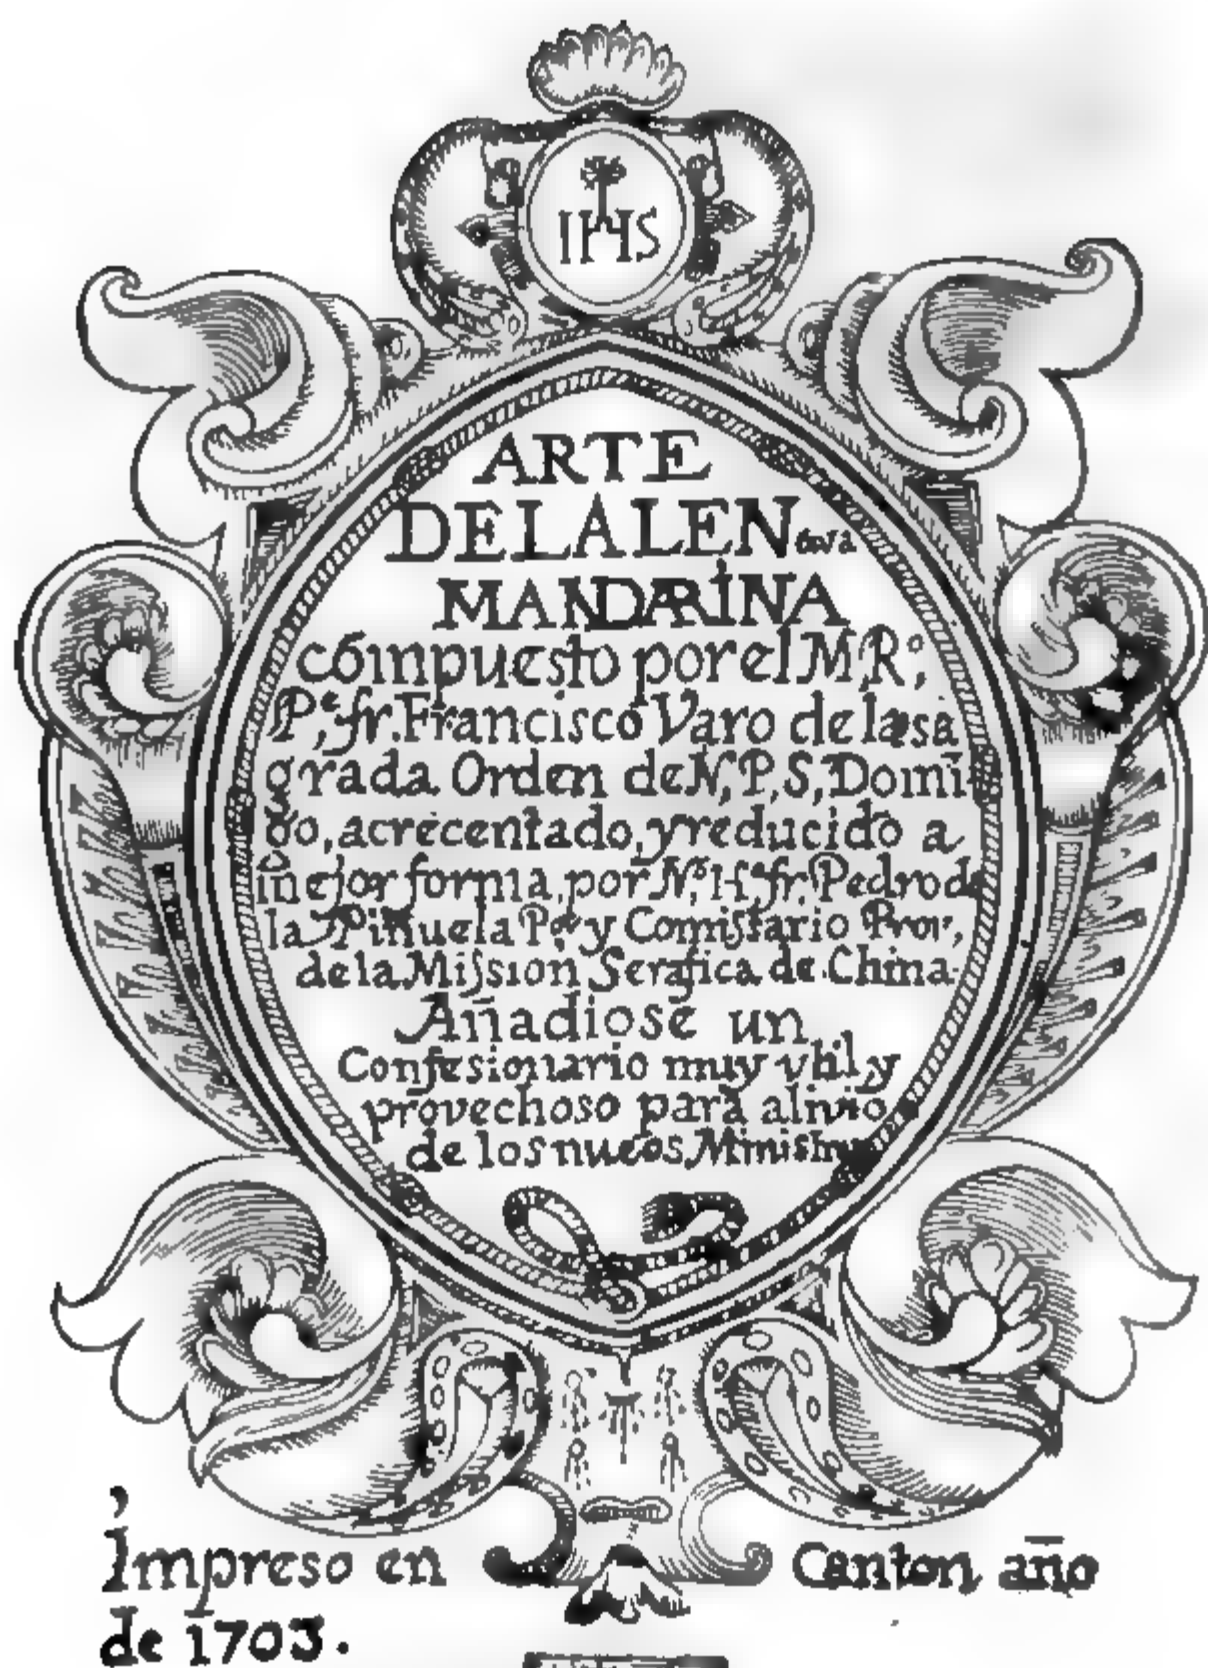 IHS
ARTE
DE LA LENgua
MANDARINA
compuesto por el M,R°,
P,ᵉ fr. Francisco Varo de la sa
grada Orden de N,P,S, Domī
go, acrecentado, y reducido a
mejor forma, por N,° H,° fr. Pedro de
la Piñuela P,ᵒʳ y Comissario Prov,
de la Mission Serafica de China.
Añadiose un
Confesionario muy vtil, y
provechoso para alivio
de los nueos Ministros
Impreso en Canton año
de 1703.